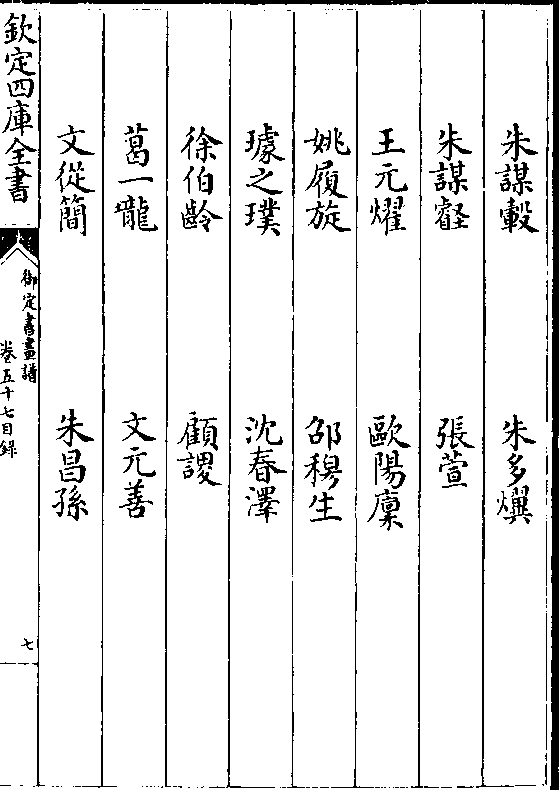 朱謀轂　朱多熼
朱謀壡　張萱
王元燿　歐陽廩
姚履旋　邵穆生
璩之璞　沈春澤
徐伯齡　顧謖
葛一龍　文元善
文從簡　朱昌孫
欽定四庫全書
御定書畫譜
卷五十七目錄
七